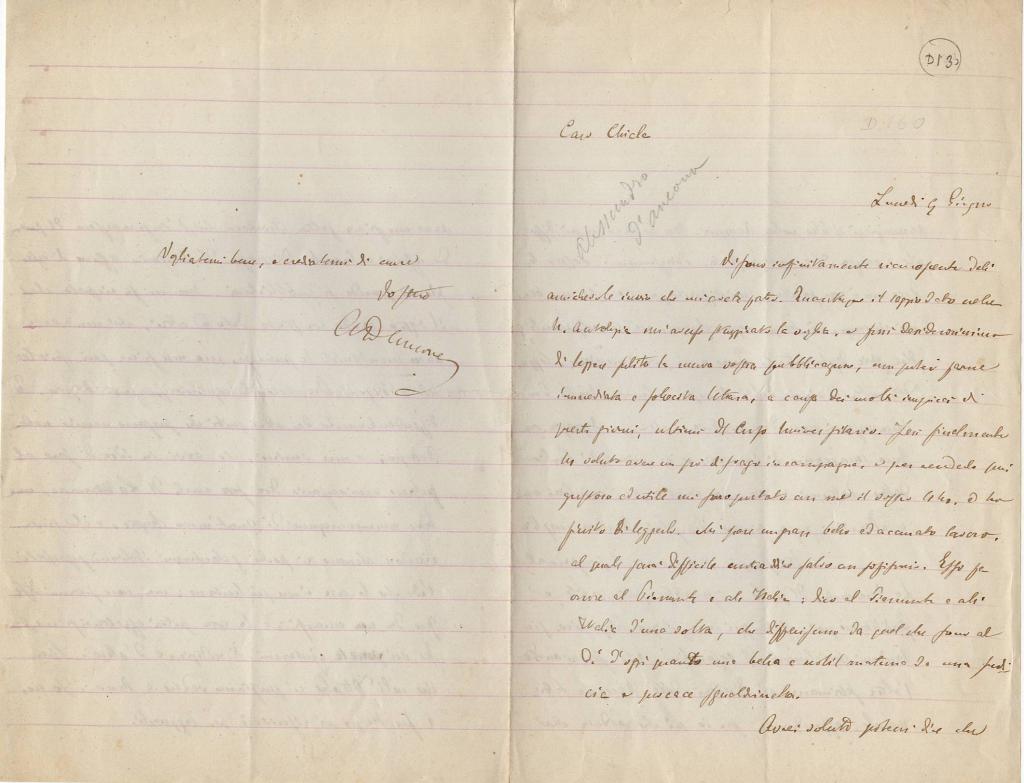 D13
D.160
Caro Chiala
Alessandro
d'Ancona
Lunedì 9 Giugno
Vi sono infinitamente riconoscente dell'
amichevole invio che mi avete fatto. Quantunque il saggio dato nella
N. Antologia mi avesse la voglia, e fossi desiderosissimo
di leggere subito la nuova vostra pubblicazione, non potei farne
immediata e lettura, a causa dei molti impicci di
questi giorni, ultimi del Corso Universitario. Jeri finalmente
ho voluto avere un po' di svago in campagna, e per renderlo più
gustoso ed utile mi sono portato con me il vostro libro, e ho
finito di leggerlo. Mi pare un bello ed accurato lavoro,
al quale sarà difficile contraddire salvo con sofismi. Esso fa
onore al Piemonte e all'Italia: dico al Piemonte e all'
Italia d'una volta, che differiscono da quel che sono al
dì d'oggi quanto una bella e nobil matrona da una
e sgualdrinella.
Avrei voluto potervi dire che
Vogliatemi bene, e credetemi di cuore
Vostro
A. D'Ancona